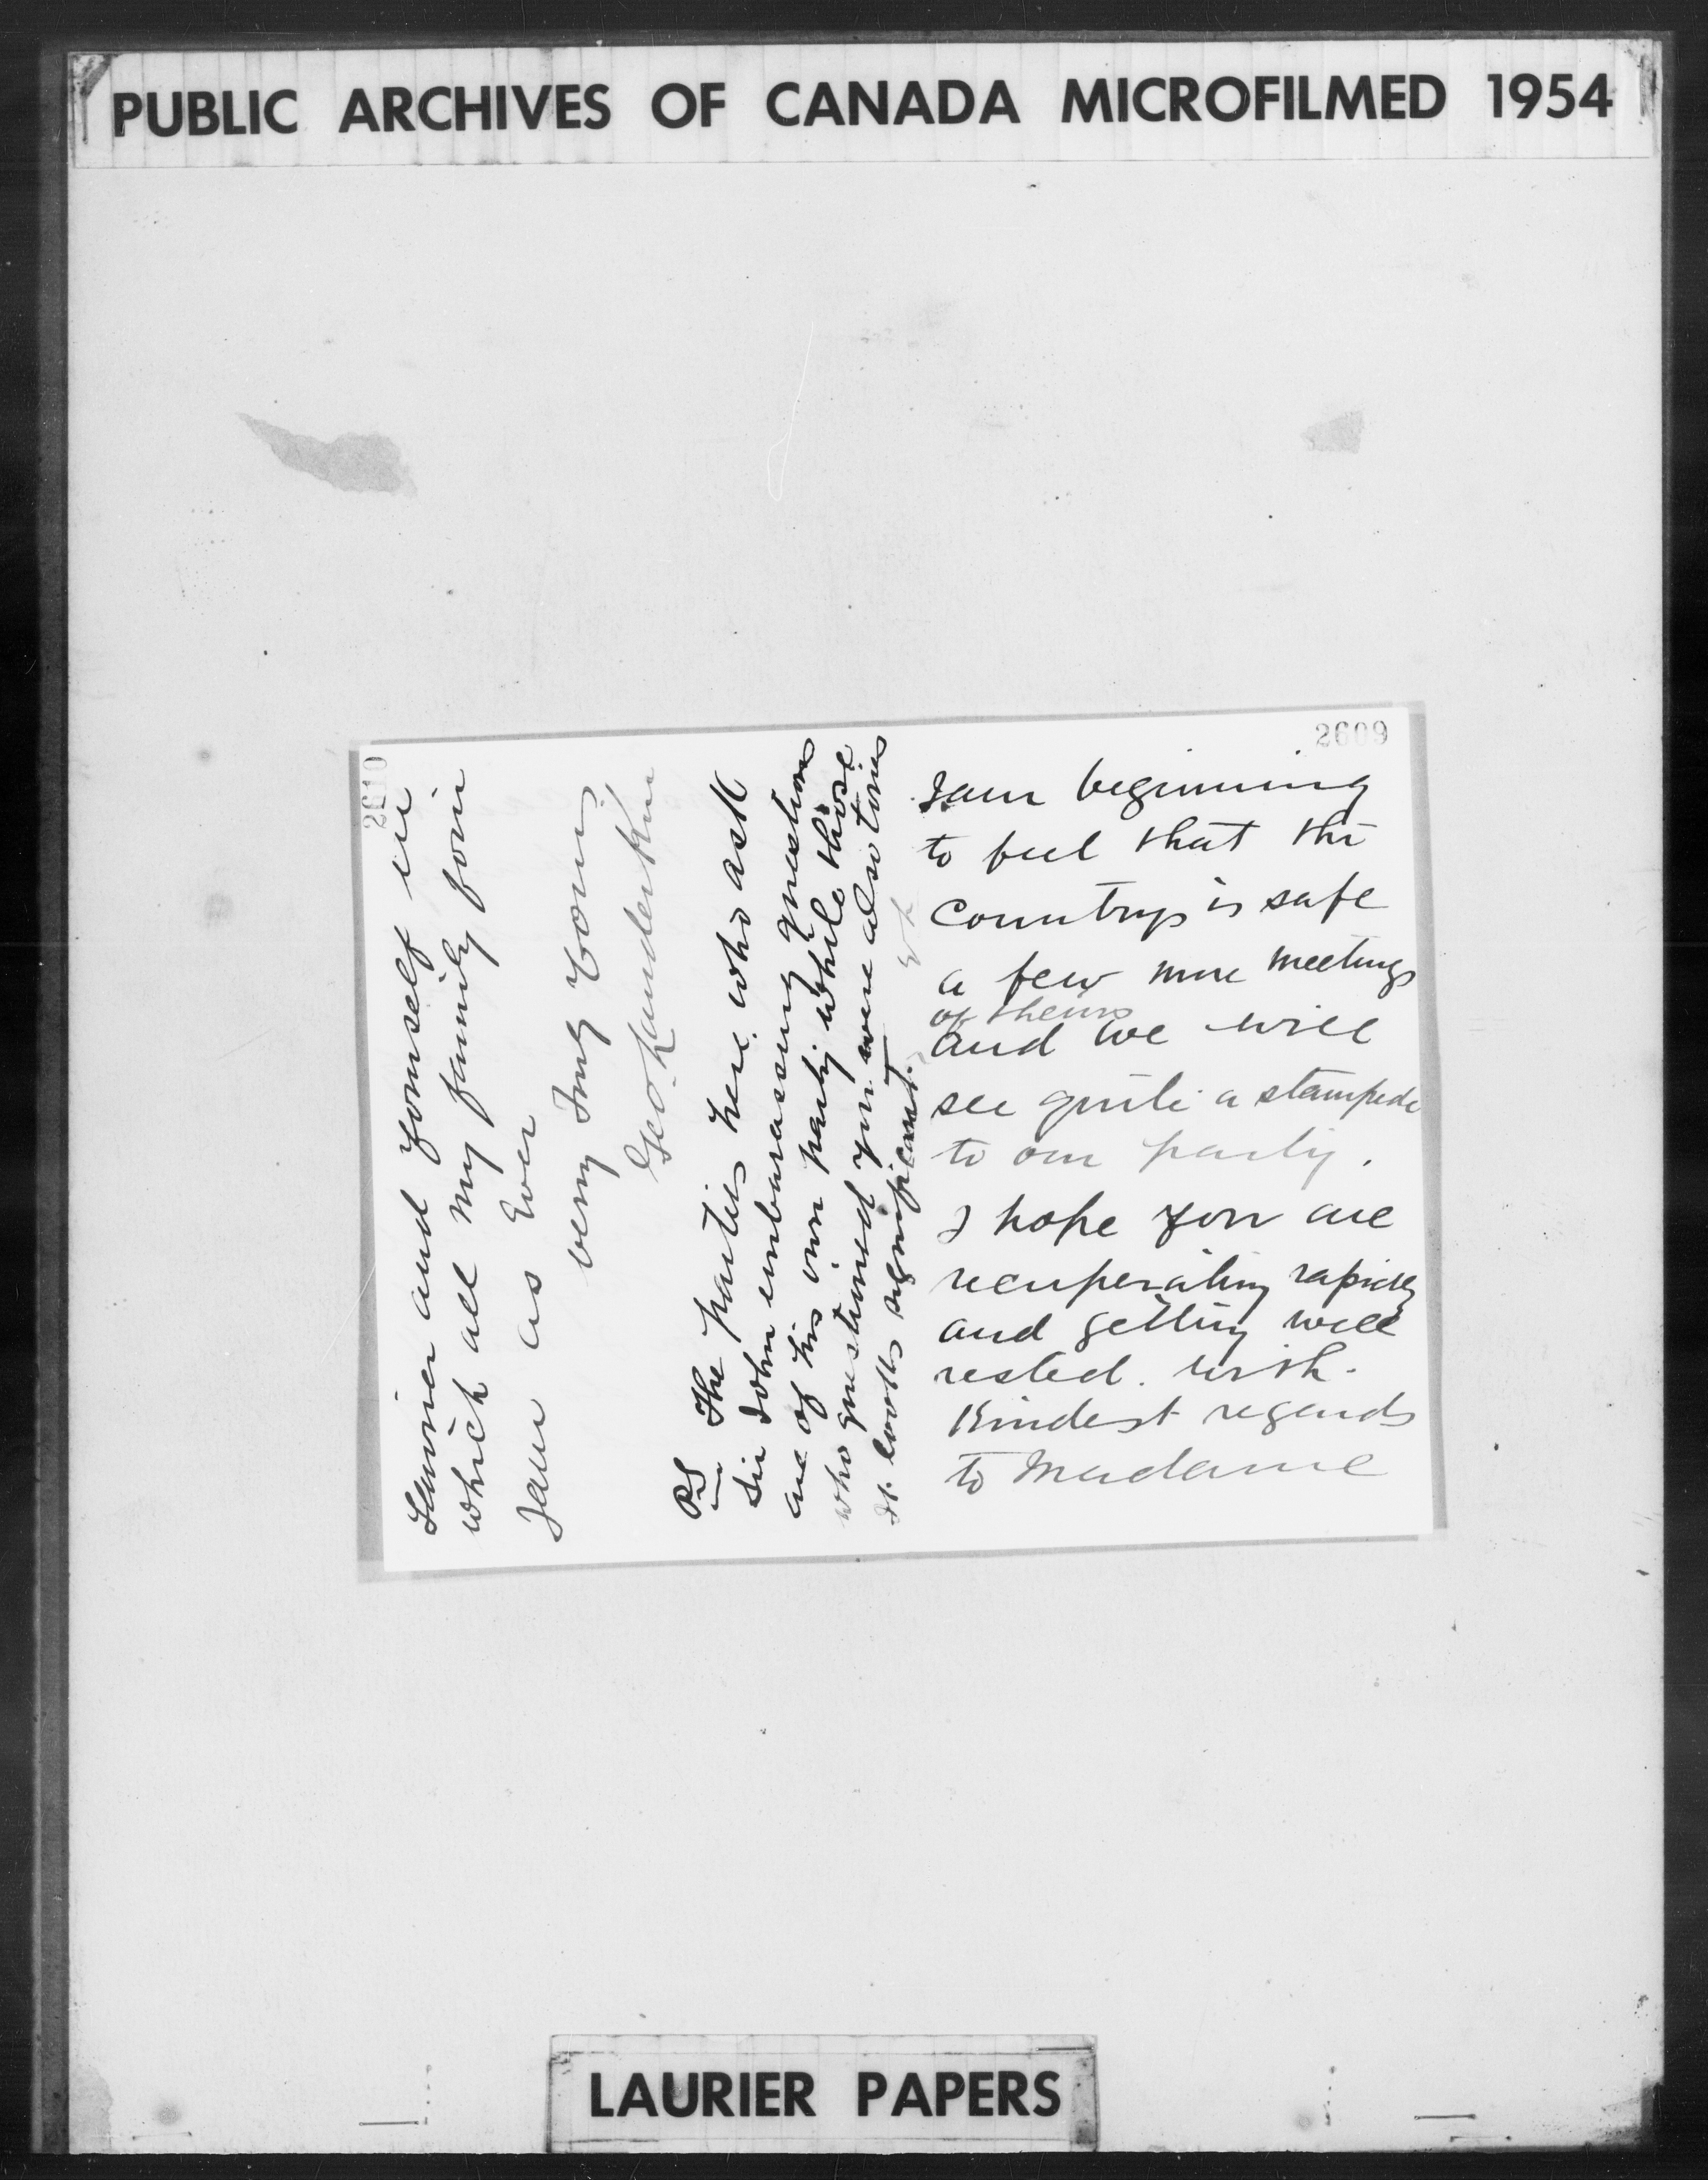 PUBLIC ARCHIVES OF CANADA MICROFILMED 1954
2609
I am beginning
to feel that the
Country is safe
a few more meetings
of theirs
and we will
see quite a stampede
to our party.
I hope you are
recuperating rapidly
and getting well
rested. with
Kindest regards
to Madame
2610
Laurier and yourself in
which all my family join
I am as Ever
very Truly Yours
Geo Landerkin
PS The parties here who ask
Sir John embarassing questions
are of his own party while those
who questioned you were also tories
It looks significant.
GL
LAURIER PAPERS